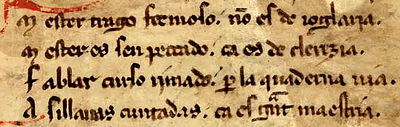 M ester trago fermoso. nõ es de ioglaria.
M ester es sen peccado. ca es de clerezia.
F ablar curso rimado. per la quaderna uia.
A sillauas cuntadas. ca es grãt maestria.